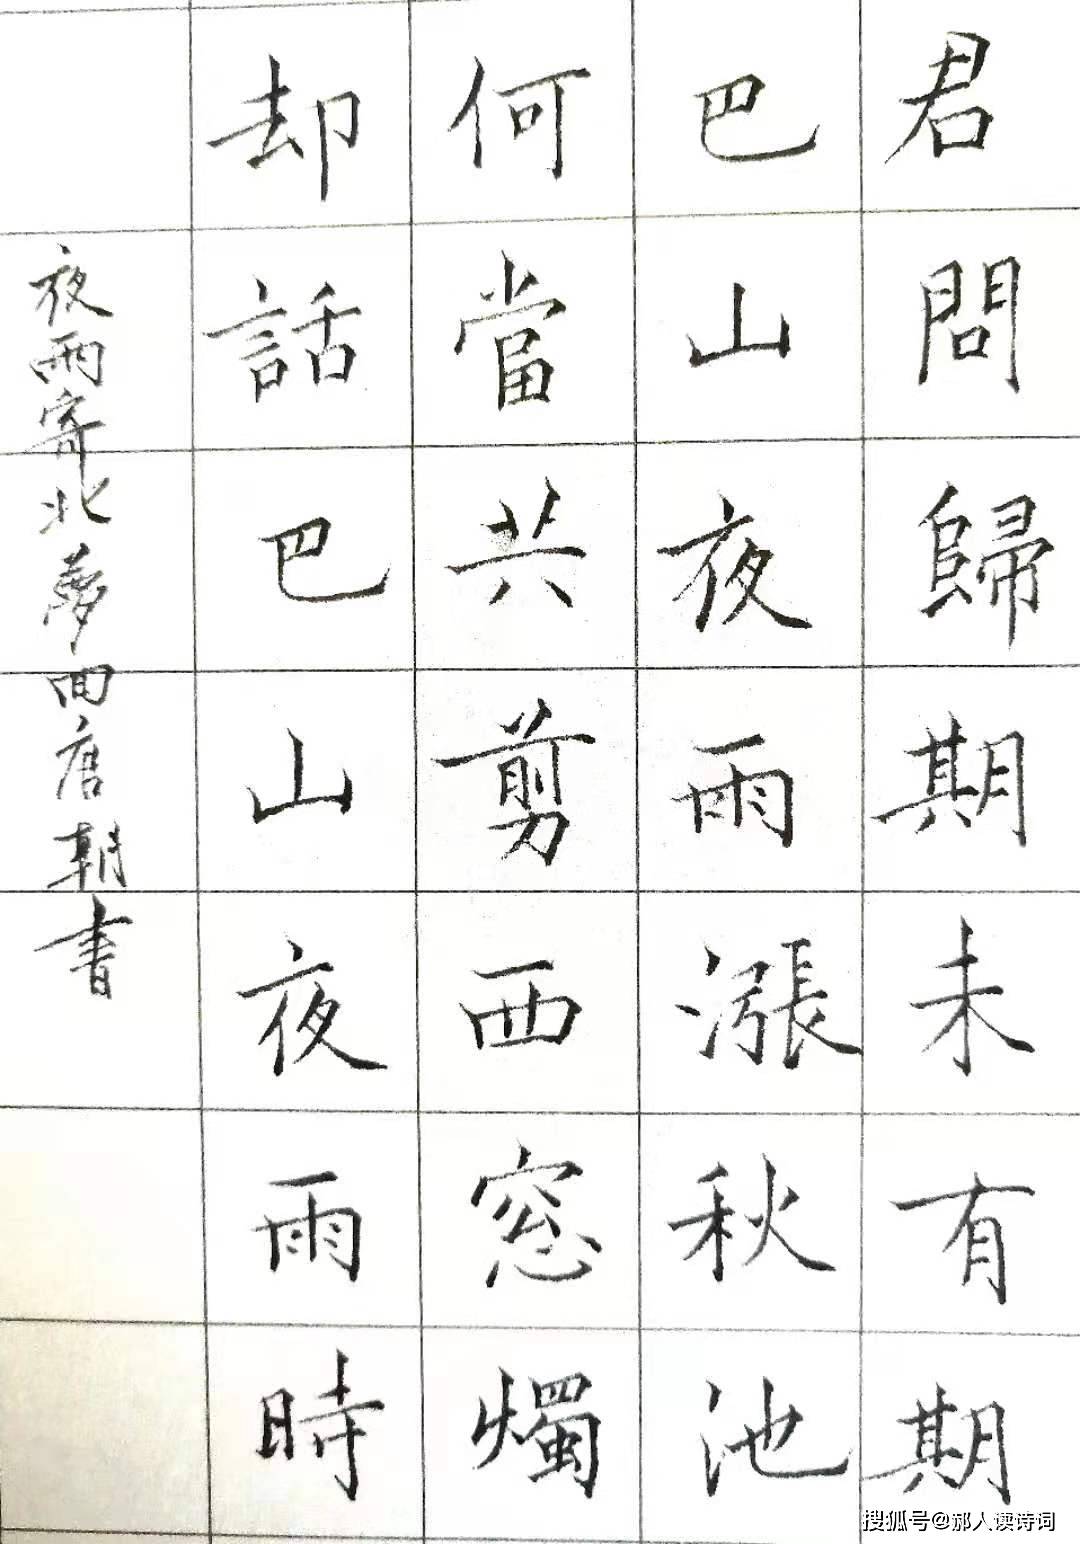 君問歸期未有期
巴山夜雨漲秋池
何當共剪西窓燭
却話巴山夜雨時
夜雨寄北夢回唐朝書
搜狐号@郝人读诗词